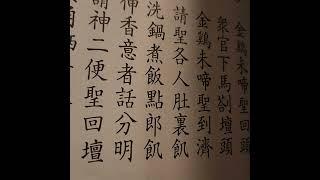 金鷄未啼聖回頭
衆官下馬劄壇頭
金鷄未啼聖到濟
請聖各人肚裏飢
洗鍋煮飯點郎飢
神香意者話分明
請神二便聖回壇